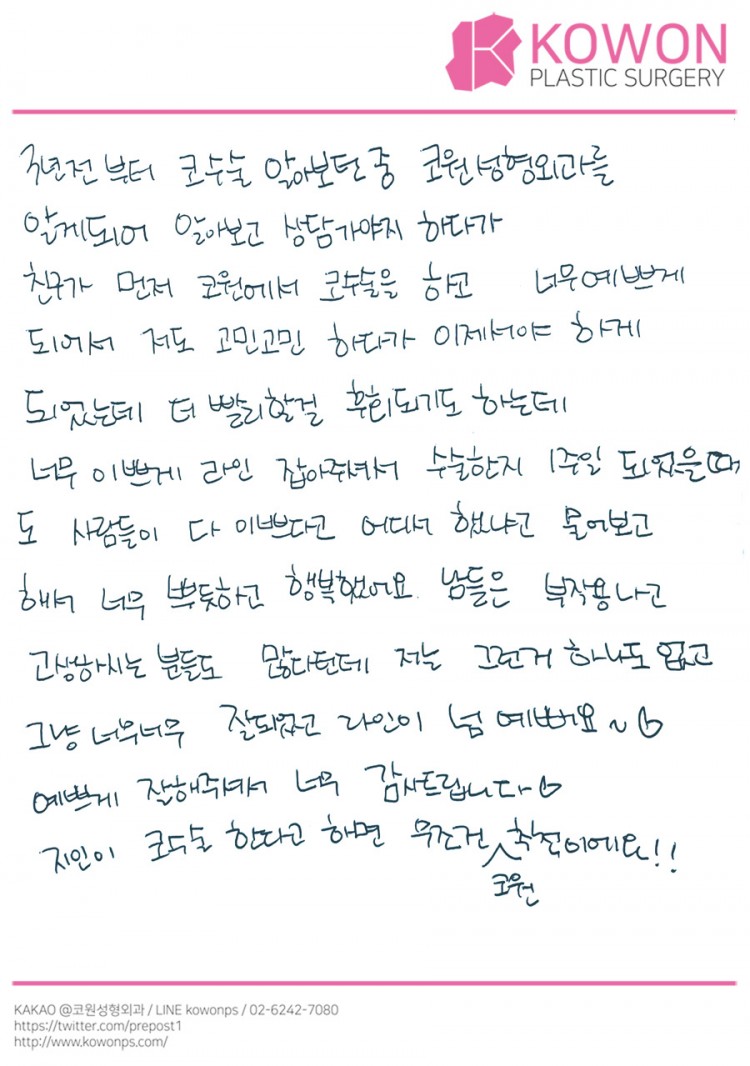 KOWON
PLASTIC SURGERY
3년전 부터 코수술 알아보던 중 코원성형외과를
알게되어 알아보고 상담가야지 하다가
친구가 먼저 코원에서 코수술을 하고 너무예쁘게
되어서 저도 고민고민 하다가 이제서야 하게
되었는데 더 빨리할걸 후회되기도 하는데
너무 이쁘게 라인 잡아주셔서 수술한지 1주일 되었을때
도 사람들이 다 이쁘다고 어디서 했냐고 물어보고
해서 너무 뿌듯하고 행복했어요. 남들은 부작용나고
고생하시는 분들도 많다던데 저는 그런거 하나도 없고
그냥 너무너무 잘되었고 라인이 넘 예뻐요~♡
예쁘게 잘해주셔서 너무 감사드립니다♡
지인이 코수술 한다고 하면 무조건 코원 추천이에요!!
KAKAO @코원성형외과 / LINE kowonps / 02-6242-7080
https://twitter.com/prepost1
http://www.kowonps.com/